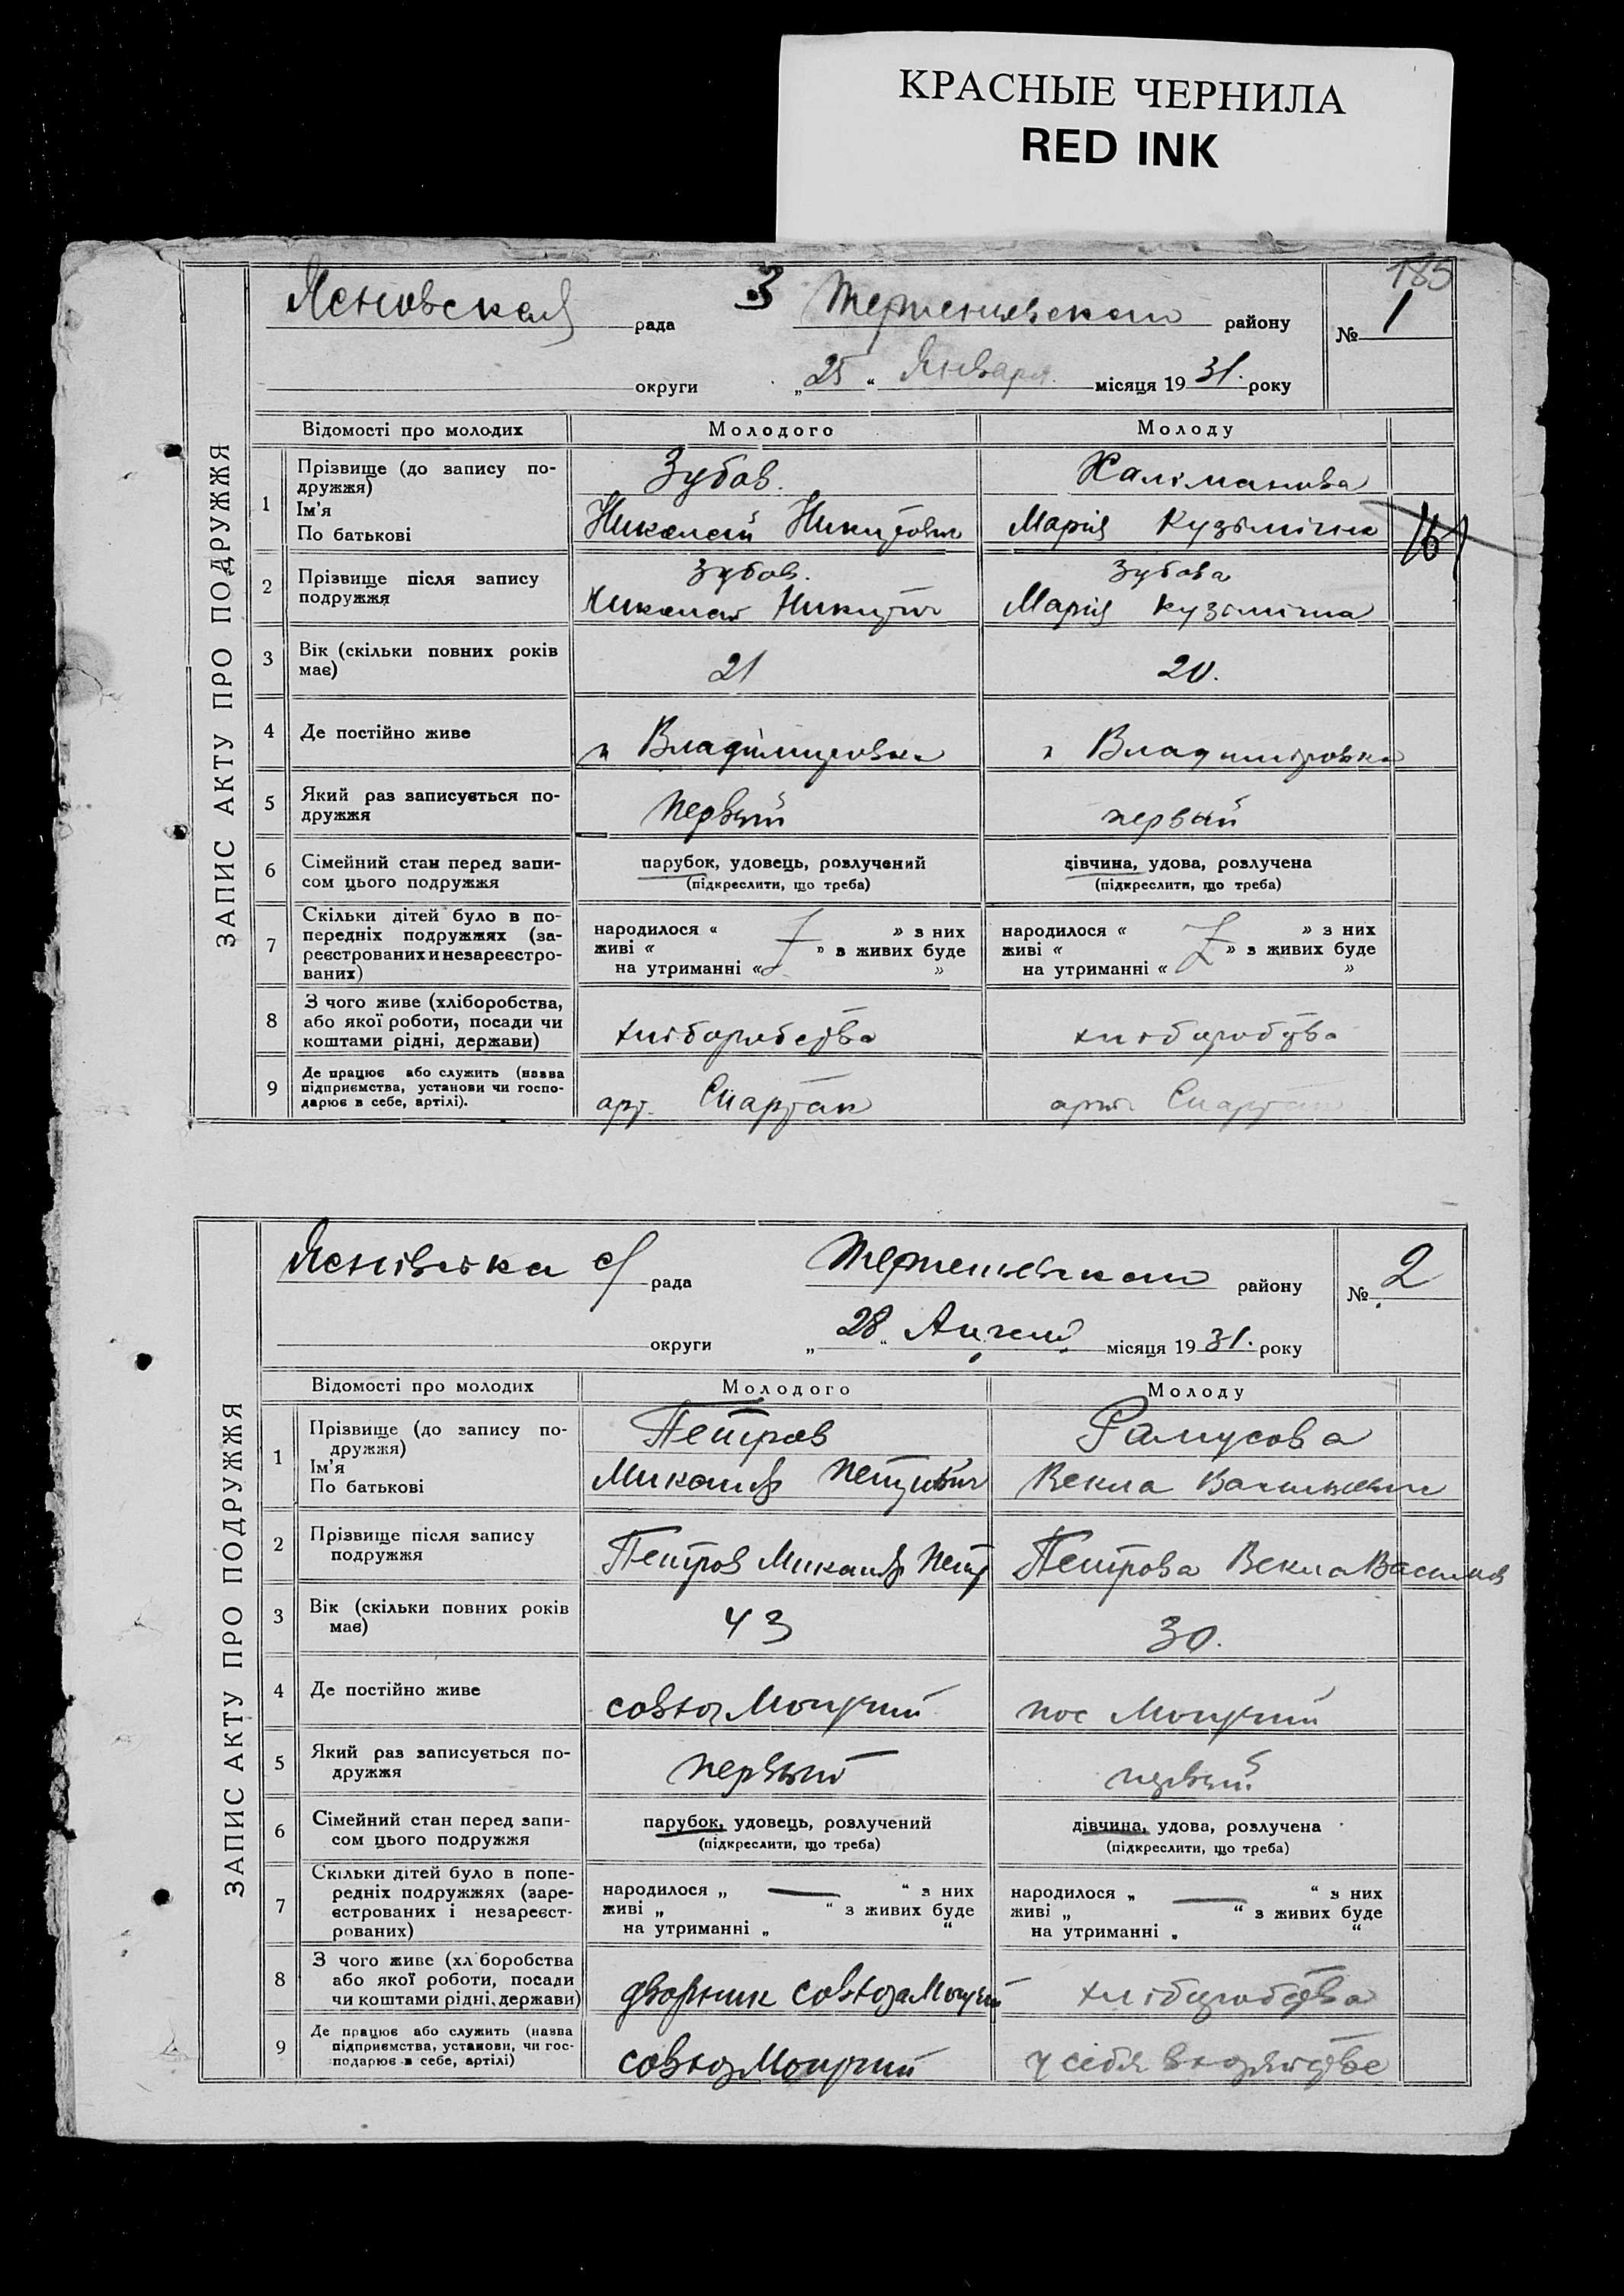 КРАСНЫЕ ЧЕРНИЛА
RED INK
185
ЗАПИС АКТУ ПРО ПОДРУЖЖЯ
Ясновская рада 3 району № 1
округи „25“ Января місяця 1931. року
Відомості про молодих Молодого Молоду
1 Прізвище (до запису по-
дружжя) Зубов. Халіманова
Ім'я
По батькові Николай Никитович Мария Кузьмінична
2 Прізвище після запису Зубов. Зубова
подружжя Николай Мария
3 Вік (скільки повних років
має) 21 20.
4 Де постійно живе Владімировка Владимировка
5 Який раз записується по-
дружжя первый первый
6 Сімейний стан перед запи- парубок, удовець, розлучений дівчина, удова, розлучена
сом цього подружжя (підкреслити, що треба) (підкреслити, що треба)
7 Скільки дітей було в по-
передніх подружжях (за- народилося « » з них народилося « » з них
реєстрованих и незареєстро- живі « » з живих буде живі « » з живих буде
ваних) на утриманні « » на утриманні « »
8 З чого живе (хліборобства,
або якої роботи, посади чи
коштами рідні, держави) хліборобства хліборобства
9 Де працює або служить (назва
підприємства, установи чи госпо-
дарює в себе, артілі). арт. Спартак арт. Спартак
ЗАПИС АКТУ ПРО ПОДРУЖЖЯ
рада району № 2
округи „28“ місяця 1931. року
Відомості про молодих Молодого Молоду
1 Прізвище (до запису по-
дружжя) Петров
Ім'я
По батькові Векла
2 Прізвище після запису
подружжя Петров Петрова Векла
3 Вік (скільки повних років
має) 43 30.
4 Де постійно живе совхоз пос
5 Який раз записується по-
дружжя первый первый
6 Сімейний стан перед запи- парубок, удовець, розлучений дівчина, удова, розлучена
сом цього подружжя (підкреслити, що треба) (підкреслити, що треба)
7 Скільки дітей було в попе-
редніх подружжях (заре- народилося „ — “ з них народилося „ — “ з них
єстрованих і незареєст- живі „ “ з живих буде живі „ “ з живих буде
рованих) на утриманні „ “ на утриманні „ “
8 З чого живе (хл боробства
або якої роботи, посади
чи коштами рідні, держави) дворник совхоза хліборобства
9 Де працює або служить (назва
підприємства, установи, чи гос-
подарює в себе, артілі) совхоз у себя в